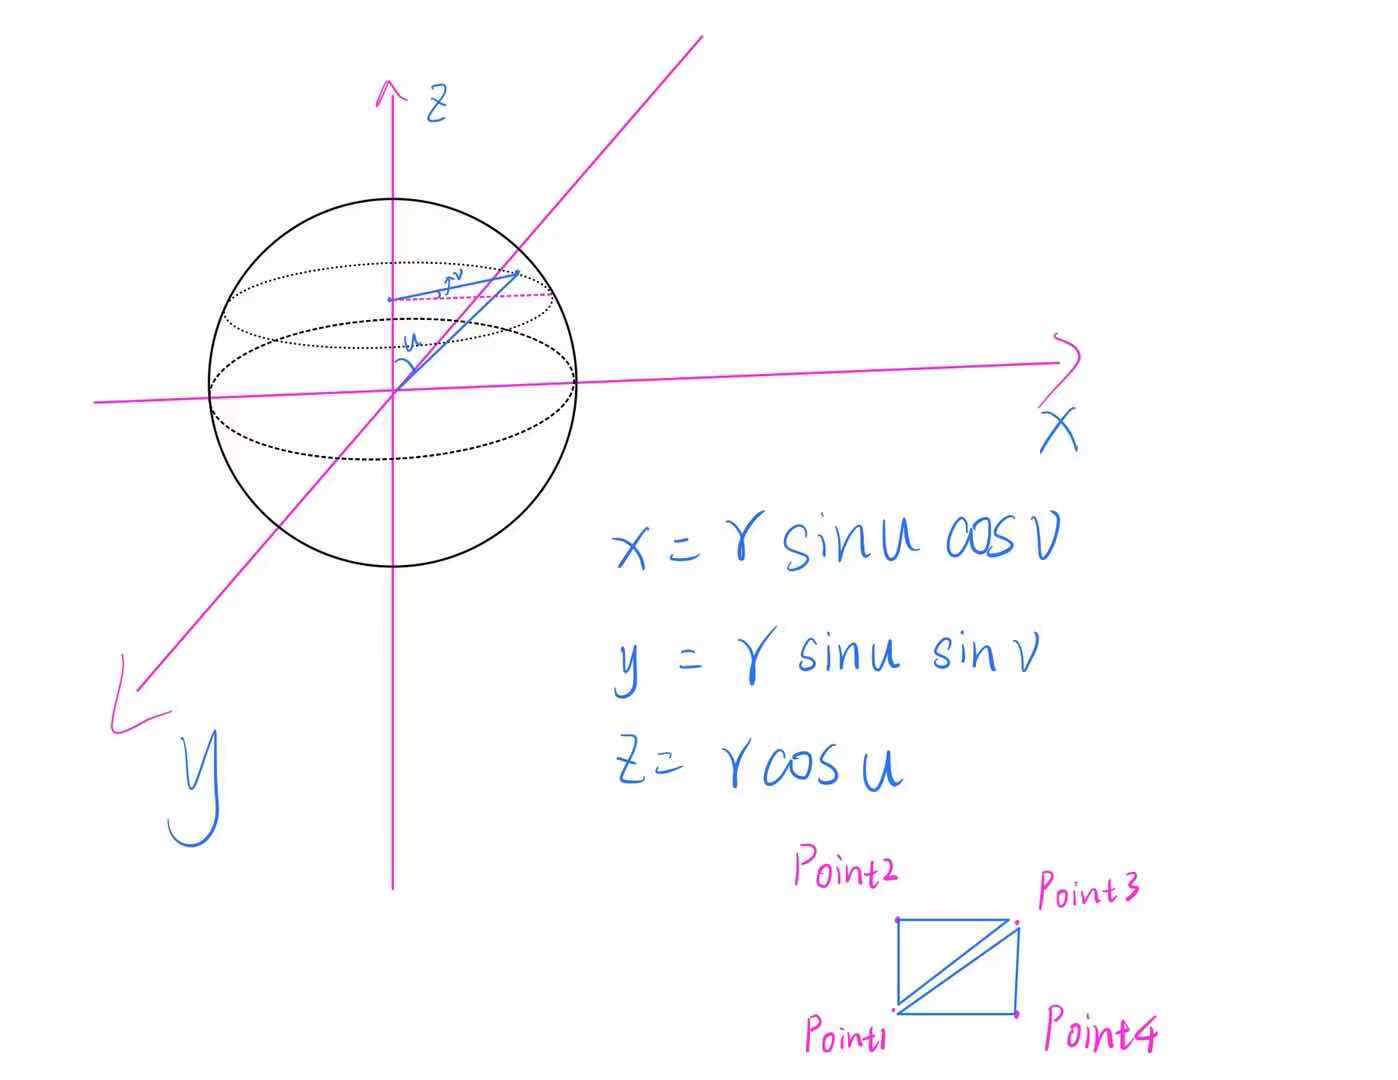 z
v
u
x
x = r sinu cosv
y = r sinu sinv
z = r cosu
y
Point2
Point3
Point1
Point4